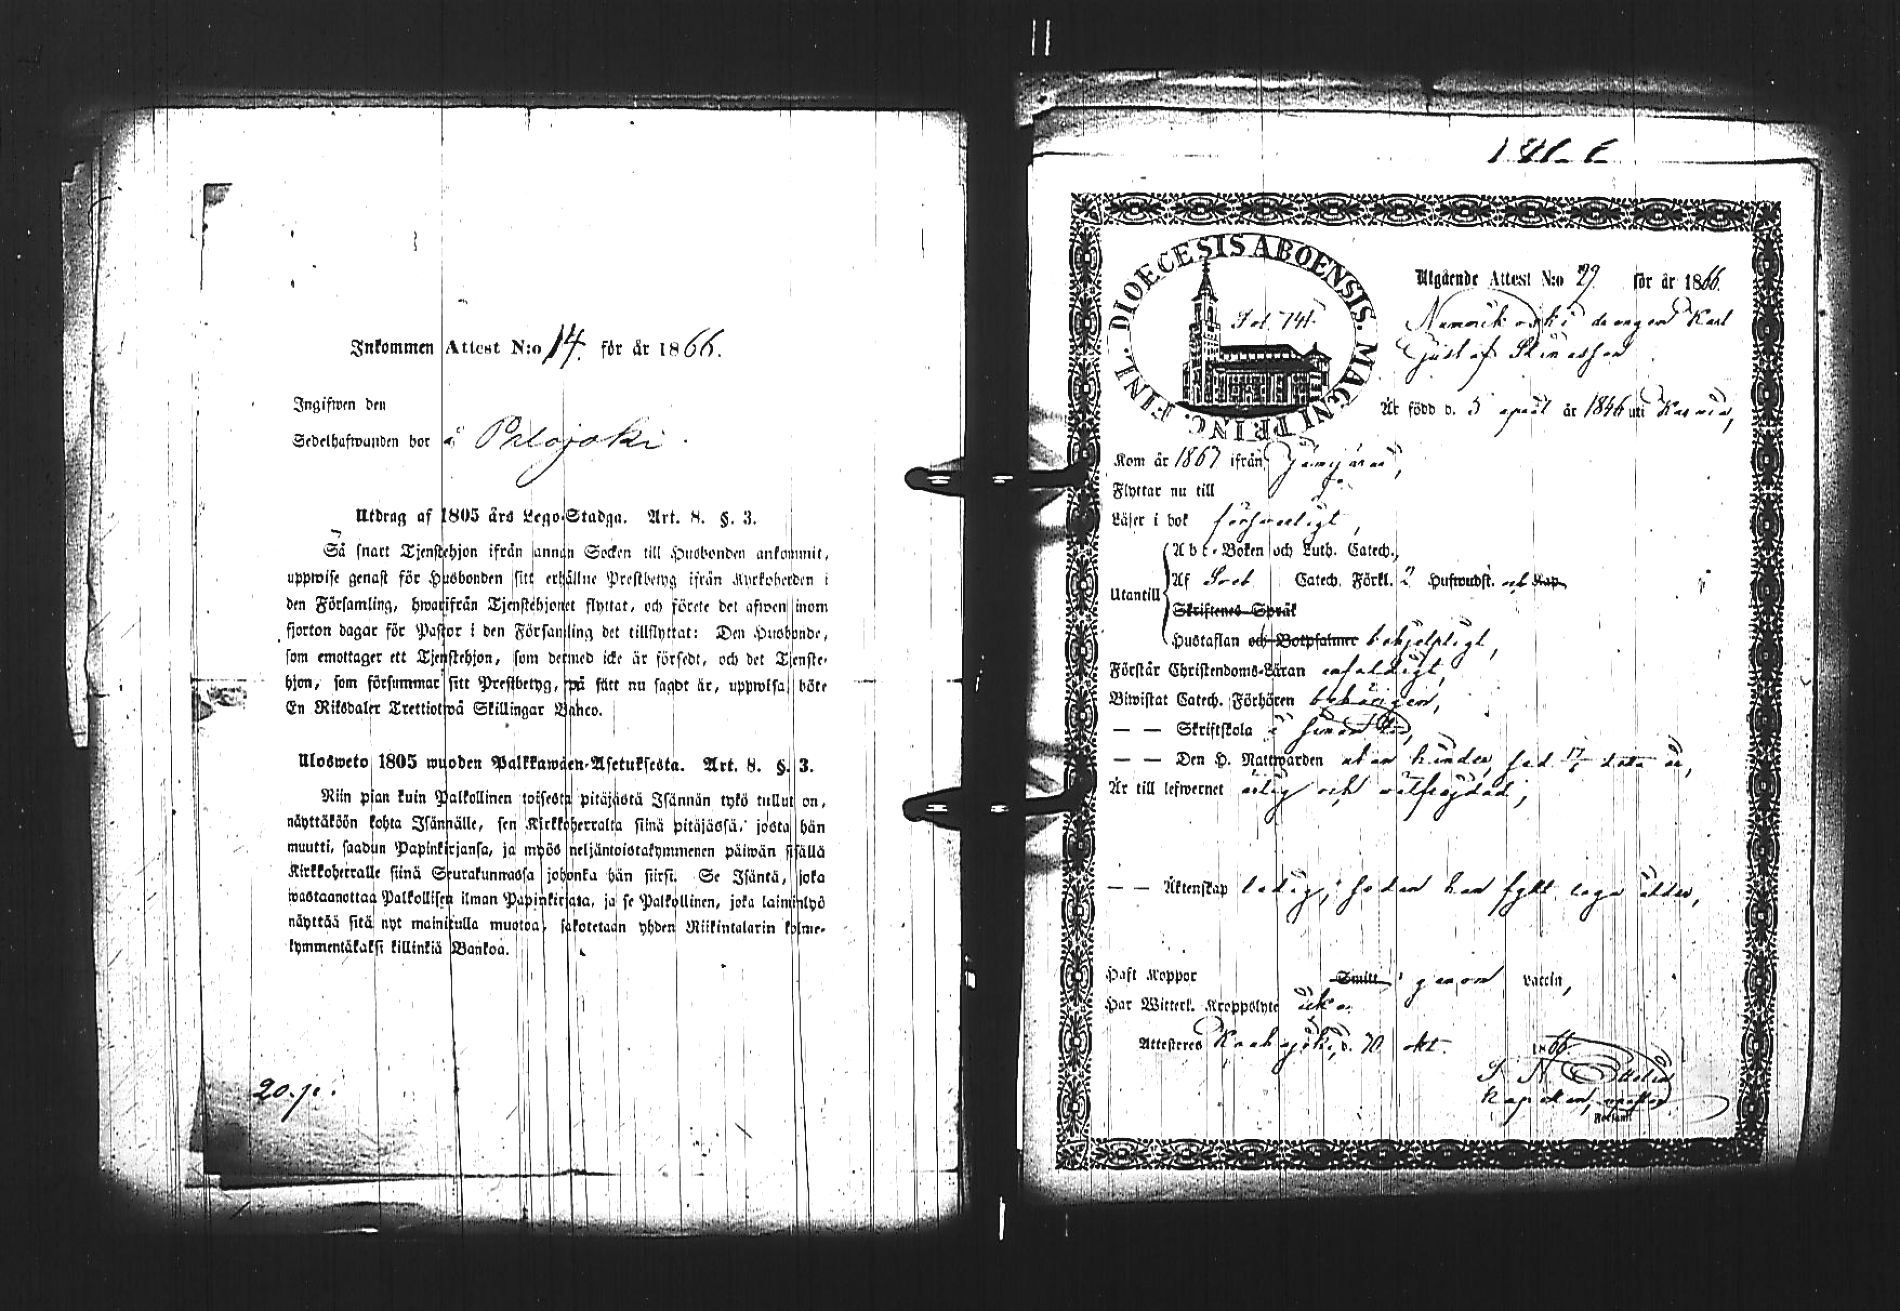 Inkommen Attest N:o 14. för år 1866.
Ingifwen den
Sedelhafwanden bor å Palojoki.
Utdrag af 1805 års Lego-Stadga. Art. 8. §. 3.
Så snart Tjenstehjon ifrån annan Socken till Husbonden ankommit,
uppwise genast för Husbonden sitt erhållne Prestbetyg ifrån Kyrkoherden i
den Församling, hwarifrån Tjenstehjonet flyttat, och förete det äfwen inom
fjorton dagar för Pastor i den Församling det tillflyttat: Den Husbonde,
som emottager ett Tjenstehjon, som dermed icke är försedt, och det Tjenste-
hjon, som försummar sitt Prestbetyg, på sätt nu sagdt är, uppwisa, böte
En Riksdaler Trettiotwå Skillingar Banco.
Ulosweto 1805 wuoden Palkkawäen-Asetuksesta. Art. 8. §. 3.
Niin pian kuin Palkollinen toisesta pitäjästä Isännän tykö tullut on,
näyttäköön kohta Isännälle, sen Kirkkoherralta siinä pitäjässä, josta hän
muutti, saadun Papinkirjansa, ja myös neljäntoistakymmenen päiwän sisällä
Kirkkoherralle siinä Seurakunnassa johonka hän siirsi. Se Isäntä, joka
wastaanottaa Palkollisen ilman Papinkirjata, ja se Palkollinen, joka laiminlyö
näyttää sitä nyt mainitulla muotoa, sakotetaan yhden Riikintalarin kolme-
kymmentäkaksi killinkiä Bankoa.
20. p.
DIOECESIS ABOENSIS. MAGNI PRINC. FINL.
Fol 141.
Utgående Attest N:o 29 för år 1866.
drängen Karl
Gustaf
Är född d. 5 april år 1846 uti
Kom år 1867 ifrån
Flyttar nu till
Läser i bok försvarligt,
Abc-Boken och Luth. Catech.,
Utantill Af Sveb Catech. Förkl. 2 Hufwudst. och Hap.
Skriftenes Språk
Hustaflan och Botpsalmer behjelpligt,
Förstår Christendoms-Läran enfaldigt,
Biwistat Catech. Förhören behörigen,
— — Skriftskola
— — Den H. Nattwarden
Är till lefwernet ärlig och välfrejdad,
— — Äktenskap ledig,
Haft Koppor Smitt genom vaccin,
Har Witterl. Kroppslyte icke.
Attesteres d. 20 okt. 1866.
Kapellan,
Församl.